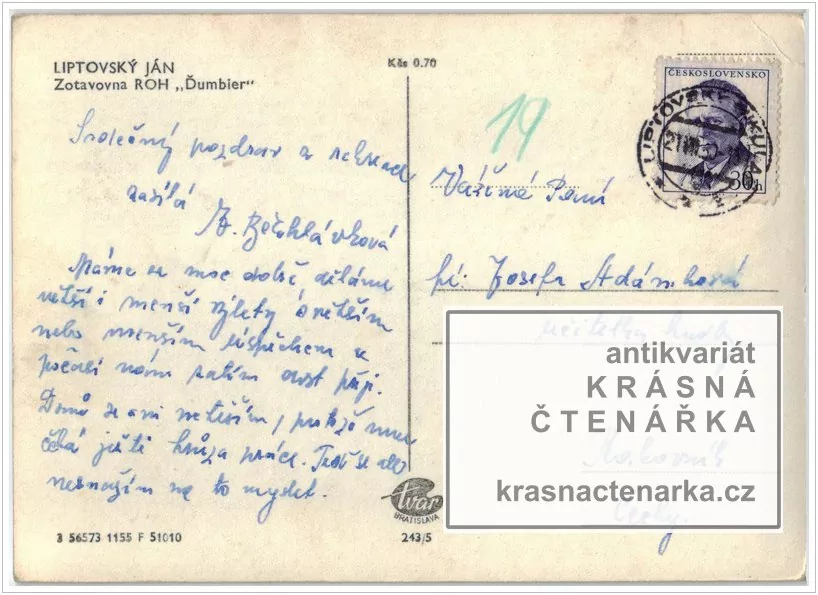 LIPTOVSKÝ JÁN
Zotavovna ROH „Ďumbier"
Kčs 0.70
19
ČESKOSLOVENSKO
30h
Srdečný pozdrav z rekreace
zasílá
Máme se moc dobře, děláme
větší i menší výlety s větším
nebo menším úspěchem a
počasí nám zatím dost přeje.
Domů se ani netěším, protože mne
čeká ještě hrůza práce. Teď se ale
nesnažím na to myslet.
Vážená Paní
pí. Josefa Adámková
učitelka hudby
Rakovník
Čechy.
antikvariát
KRÁSNÁ
ČTENÁŘKA
krasnactenarka.cz
tvar
BRATISLAVA
3 56573 1155 F 51010
243/5